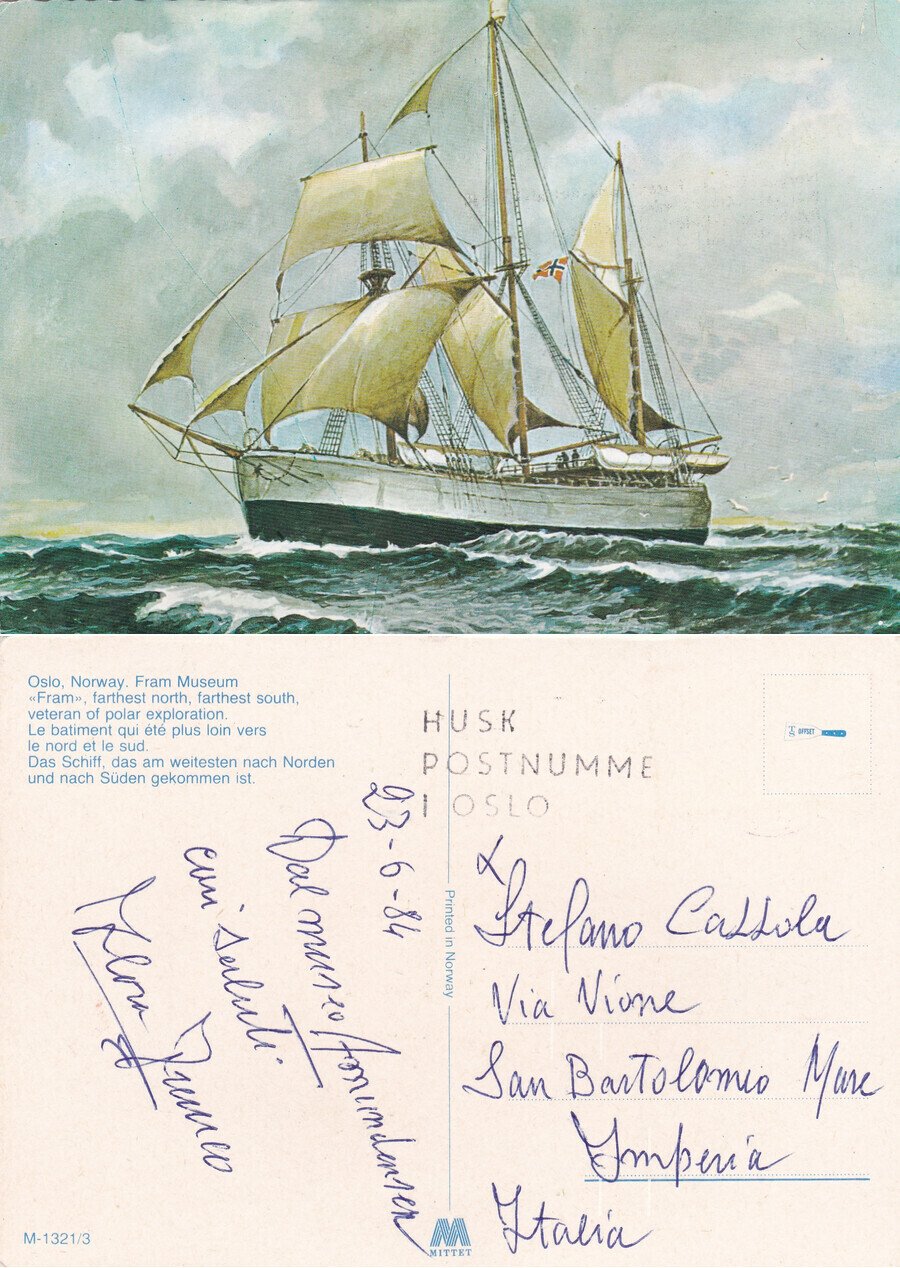 Oslo, Norway. Fram Museum
«Fram», farthest north, farthest south,
veteran of polar exploration.
Le batiment qui été plus loin vers
le nord et le sud.
Das Schiff, das am weitesten nach Norden
und nach Süden gekommen ist.
HUSK
POSTNUMME
I OSLO
OFFSET
23-6-84
Dal museo Amundensen
cari saluti
Franco
Flora
Printed in Norway
Stefano Cazzola
Via Vione
San Bartolomeo Mare
Imperia
Italia
M-1321/3
MITTET